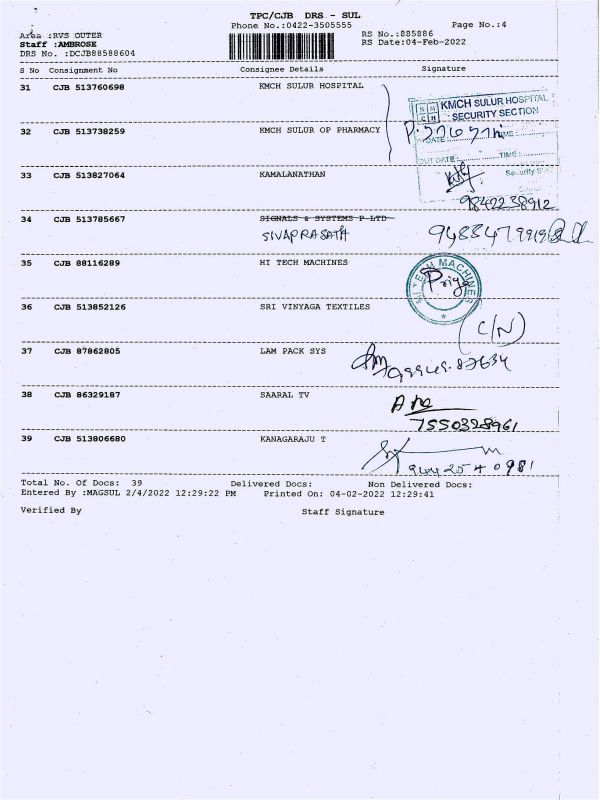 TPC/CJB DRS - SUL
Phone No.:0422-3505555
Page No.:4
Area :RVS OUTER
RS No.:885886
Staff :AMBROSE
RS Date:04-Feb-2022
DRS No. :DCJB88588604
S No Consignment No Consignee Details Signature
31 CJB 513760698 KMCH SULUR HOSPITAL
KMCH SULUR HOSPITAL
SECURITY SECTION
32 CJB 513738259 KMCH SULUR OP PHARMACY
DATE: TIME:
OUT DATE: TIME:
33 CJB 513827064 KAMALANATHAN
Security
9842238912
34 CJB 513785667 SIGNALS & SYSTEMS P LTD
SIVAPRASATH
35 CJB 88116289 HI TECH MACHINES
HI TECH MACHINES
Priya
36 CJB 513852126 SRI VINYAGA TEXTILES
(C/N)
37 CJB 87862805 LAM PACK SYS
38 CJB 86329187 SAARAL TV
7550328961
39 CJB 513806680 KANAGARAJU T
Total No. Of Docs: 39 Delivered Docs: Non Delivered Docs:
Entered By :MAGSUL 2/4/2022 12:29:22 PM Printed On: 04-02-2022 12:29:41
Verified By Staff Signature